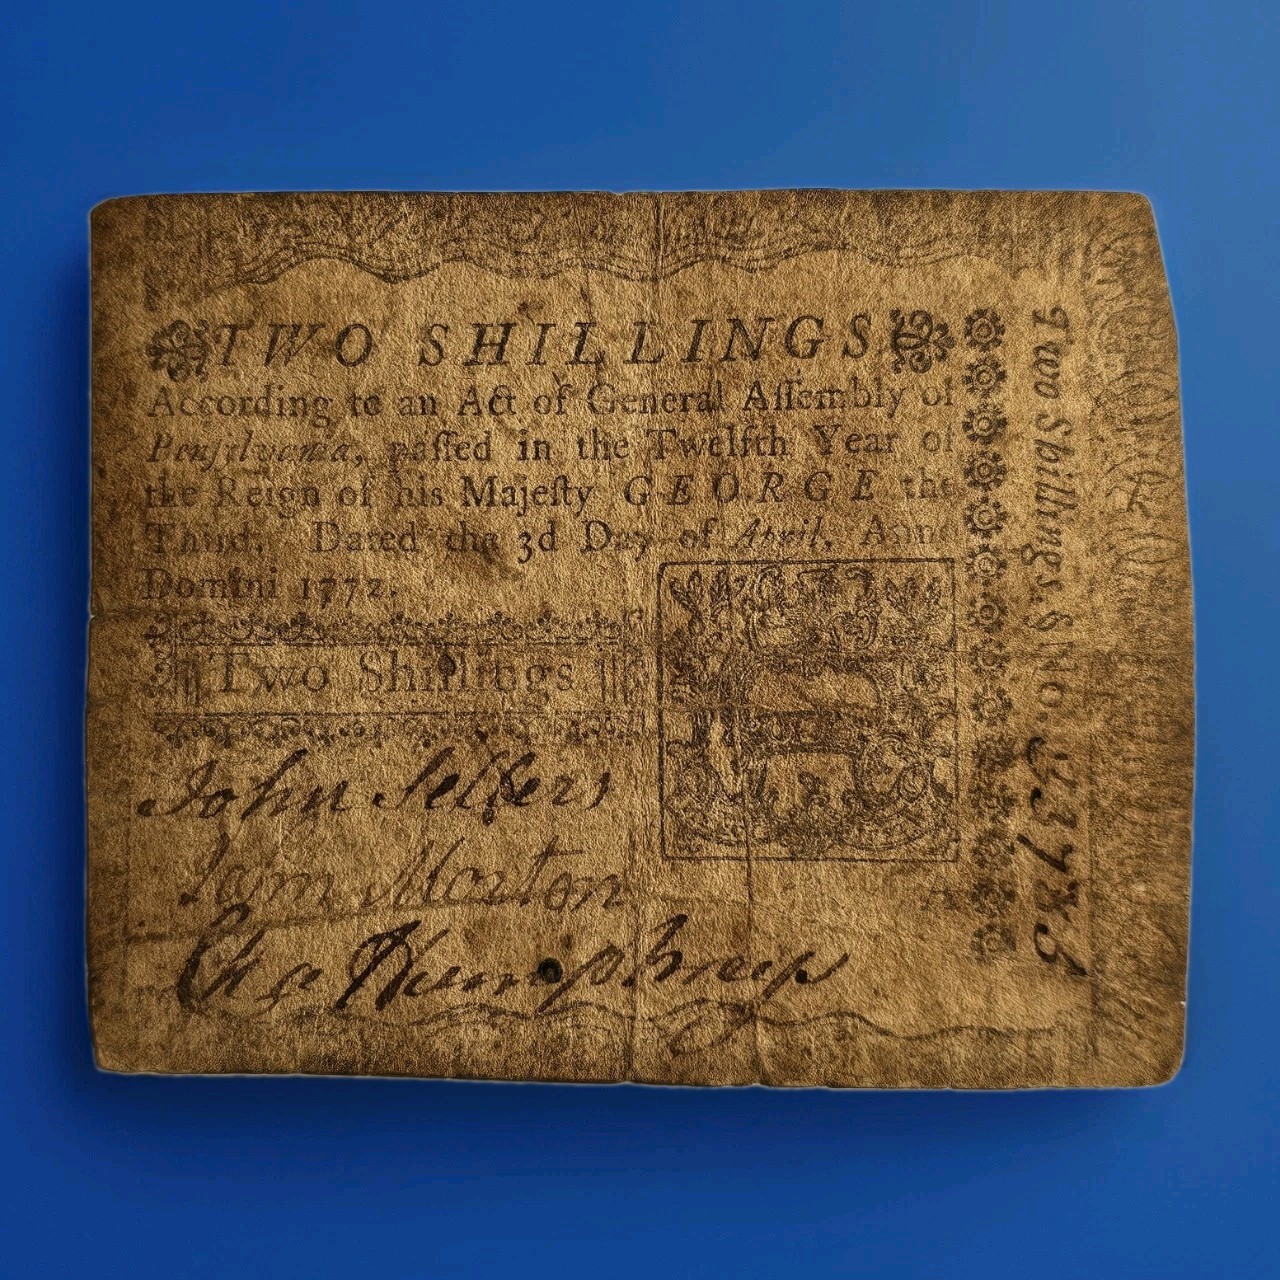 TWO SHILLINGS
According to an Act of General Aſſembly of
Penſilvania, paſſed in the Twelfth Year of
the Reign of his Majeſty GEORGE the
Third. Dated the 3d Day of April, Anno
Domini 1772.
Two Shillings
John Sellers
Morton
Cha Humphreys
Two Shillings. § No.